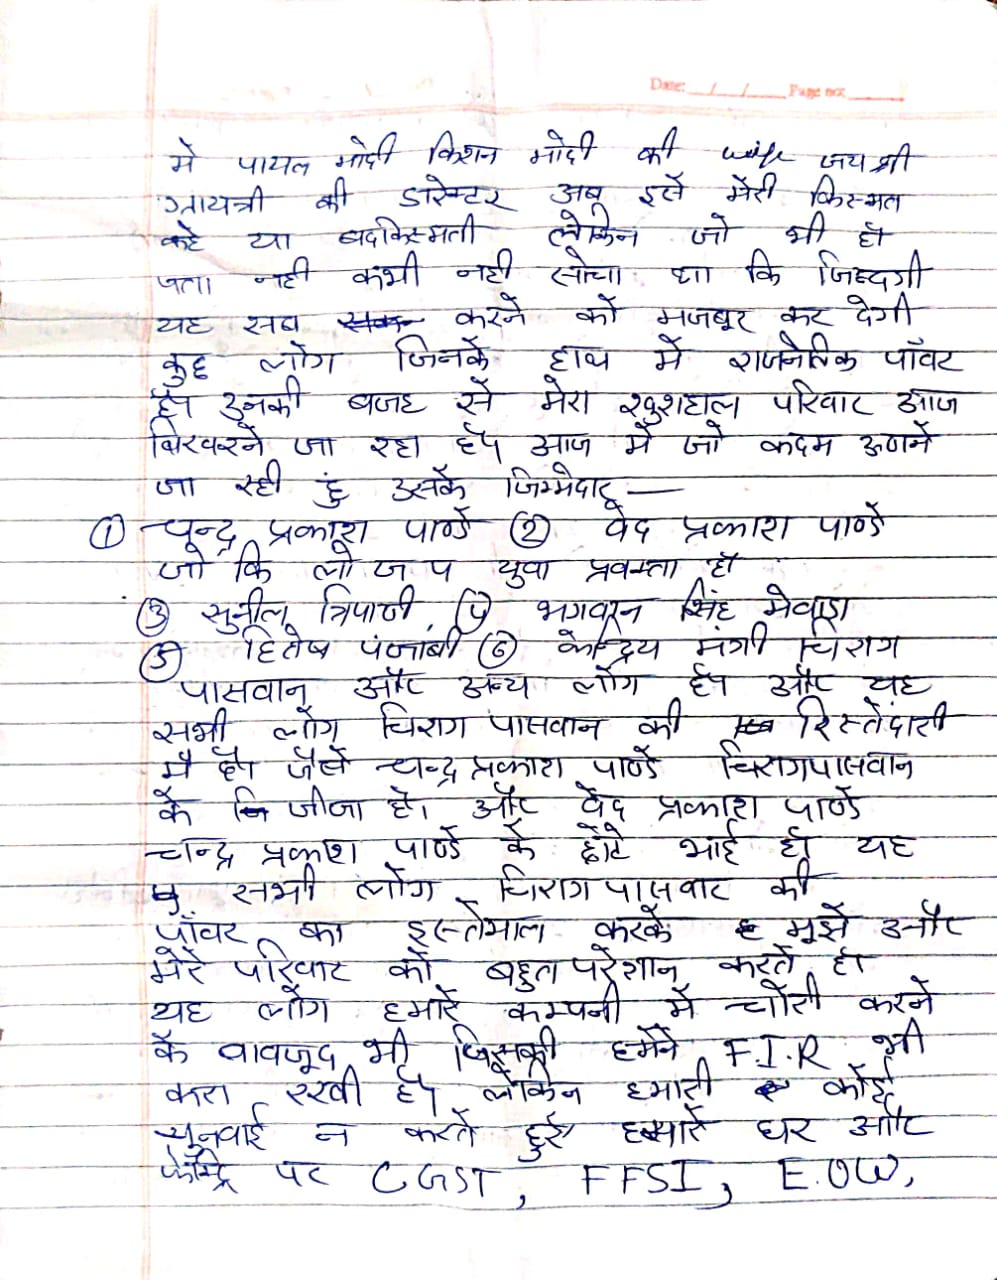 Date: __/__/____ Page no: ______
मे पायल मोदी किशन मोदी की wife जय श्री
गायत्री की डारेक्टर अब इसे मेरी किस्मत
कहे या बदकिस्मती लेकिन जो भी हो
पता नही कभी नही सोचा था कि जिन्दगी
यह सब करने को मजबूर कर देगी
कुछ लोग जिनके हाथ में राजनेतिक पॉवर
है। उनकी बजह से मेरा खुशहाल परिवार आज
बिखरने जा रहा है। आज में जो कदम उठाने
जा रही हुं उसके जिम्मेदार —
① चन्द्र प्रकाश पाण्डे ② वेद प्रकाश पाण्डे
जो कि लो ज प युवा प्रवक्ता है
③ सुनील त्रिपाठी ④ भगवान सिंह मेवाडा
⑤ हितेष पंजाबी ⑥ केन्द्रिय मंत्री चिराग
पासवान और अन्य लोग है। और यह
सभी लोग चिराग पासवान की रिस्तेदारी
मै है। जैसे चन्द्र प्रकाश पाण्डे चिराग पासवान
के जीजा है। और वेद प्रकाश पाण्डे
चन्द्र प्रकाश पाण्डे के छोटे भाई है। यह
सभी लोग चिराग पासवाट की
पॉवर का इस्तेमाल करके मुझे और
मेरे परिवार को बहुत परेशान करते है।
यह लोग हमारे कम्पनी में चोरी करने
के वावजूद भी जिसकी हमने F.I.R भी
करा रखी है। लेकिन हमारी कोई
सुनवाई न करते हुए हमारे घर और
फेक्ट्रि पर CGST, FFSI, E.OW,